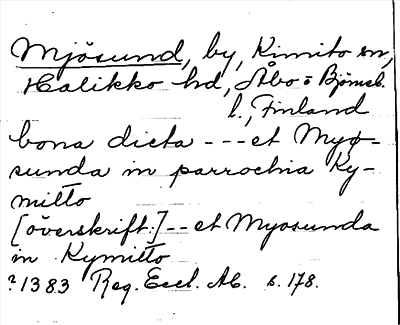 Mjösund, by, Kimito sn,
Halikko hd, Åbo o Björneb.
l., Finland
bona dicta --- et Myø-
sunda in parrochia Ky-
mitto
[överskrift:] -- et Myosunda
in Kymitto
?1383 Reg. Eccl. Ab. s. 178.